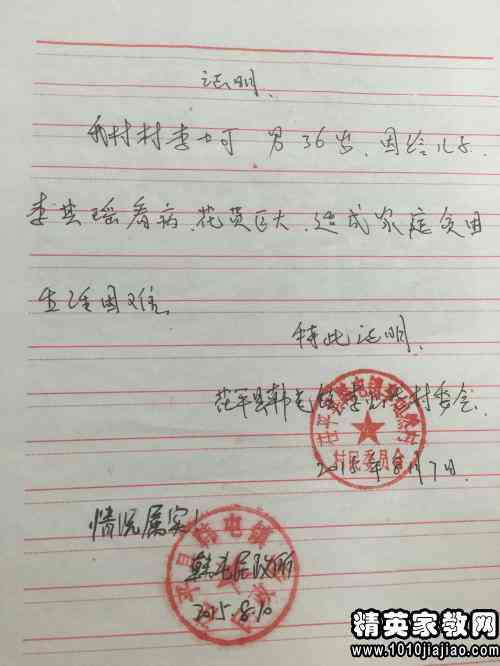 证明
我村村李 可 男 36岁,因给儿子
李其瑶看病,花费巨大,造成家庭
生活困难
特此证明
茌平县韩屯镇李 村委会
村民委员会
2015年8月7日
情况属实!
韩屯民政所
2015.8.10
精英家教网
www.1010jiajiao.com